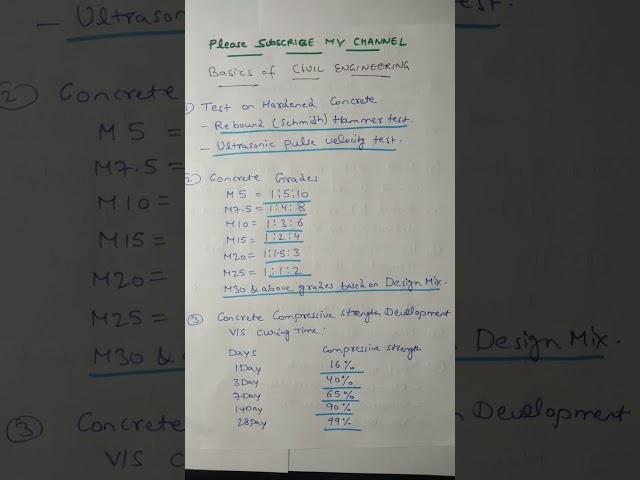 Please SUBSCRIBE MY CHANNEL
Basics of CIVIL ENGINEERING
1) Test on Hardened Concrete
- Rebound (Schmidh) Hammer test.
- Ultrasonic pulse velocity test.
2) Concrete Grades
M5 = 1:5:10
M7.5 = 1:4:8
M10 = 1:3:6
M15 = 1:2:4
M20 = 1:1.5:3
M25 = 1:1:2
M30 & above grades based on Design Mix.
3) Concrete Compressive strength Development
V/S Curing Time:
DAYS Compressive strength
1Day 16%
3Day 40%
7Day 65%
14Day 90%
28Day 99%
- Ultrason
test.
2) Concrete
M5 =
M7.5 =
M10 =
M15 =
M20 =
M25 =
M30 &
Design Mix.
3) Conc
Development
V/S C